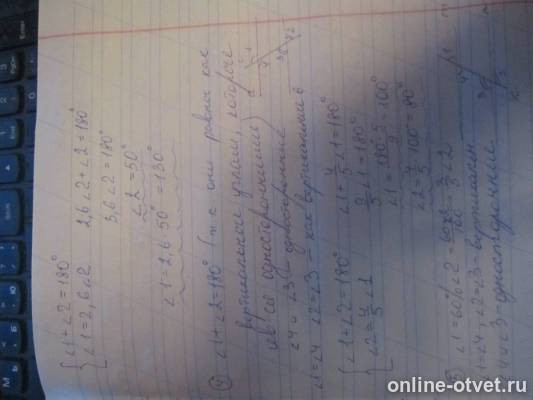 { ∠1+∠2=180°
{ ∠1=2,6∠2
2,6∠2+∠2=180°
3,6∠2=180°
∠2=50°
∠1=2,6·50°=130°
④ ∠1+∠2=180° (т.к. они равны как
вертикальные углам, которые
явл-ся односторонними)
∠4 и ∠3 односторонние
∠1=∠4 ∠2=∠3 – как вертикальные
{ ∠1+∠2=180°
{ ∠2=4/5∠1
∠1+4/5∠1=180°
9/5∠1=180°
∠1=180°·5/9=100°
∠2=4/5·100°=80°
∠1=60%∠2=60∠2/100=3/5∠2
∠1=∠4, ∠2=∠3 – вертикальн
∠4 и ∠3 – односторонние
online-otvet.ru